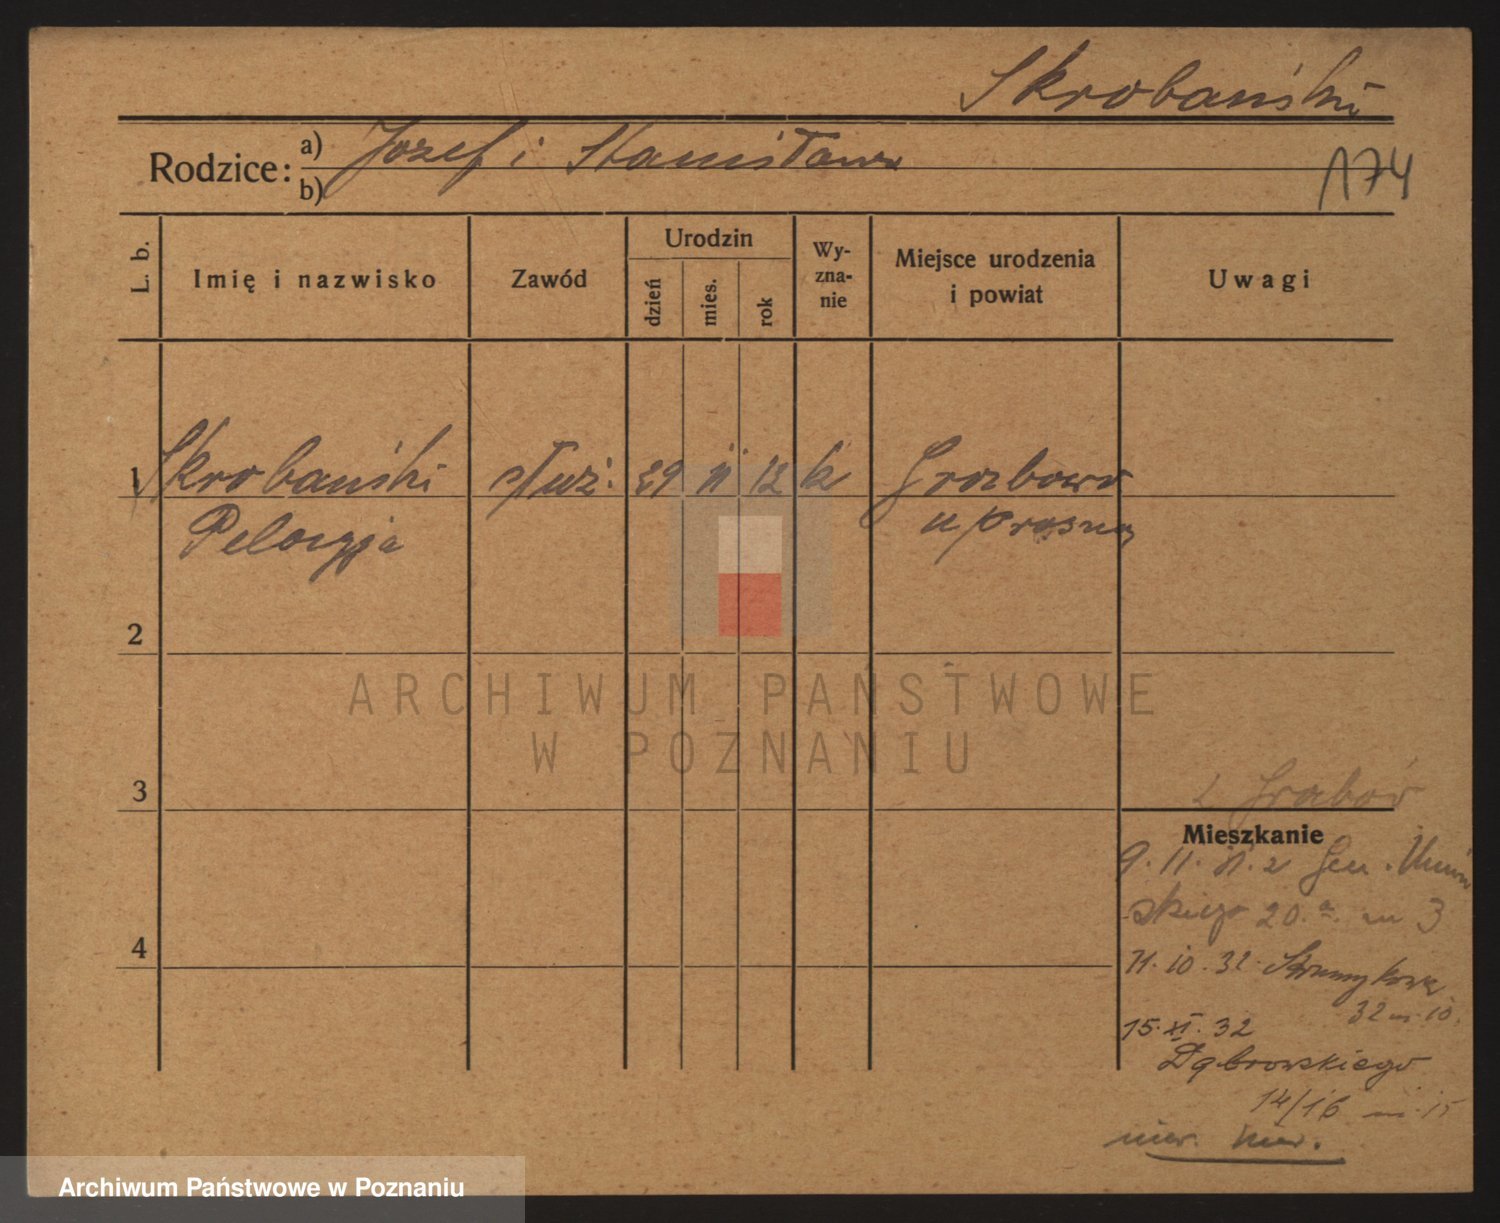 Skrobański
Rodzice: a) Józef i Stanisława
b)
174
L. b.
Imię i nazwisko
Zawód
Urodzin
dzień
mies.
rok
Wy-
zna-
nie
Miejsce urodzenia
i powiat
Uwagi
1 Skrobański służ. 29 11 12 k Grabowo
Pelagja n/Prosną
2
ARCHIWUM PAŃSTWOWE
W POZNANIU
3
z Grabów
Mieszkanie
9. 11. Gen. Umiń
skiego 20.a m 3
4
11. 10. 32. Strumykowa
32 m. 10.
15. XI. 32
Dąbrowskiego
14/16 m. 15
Archiwum Państwowe w Poznaniu